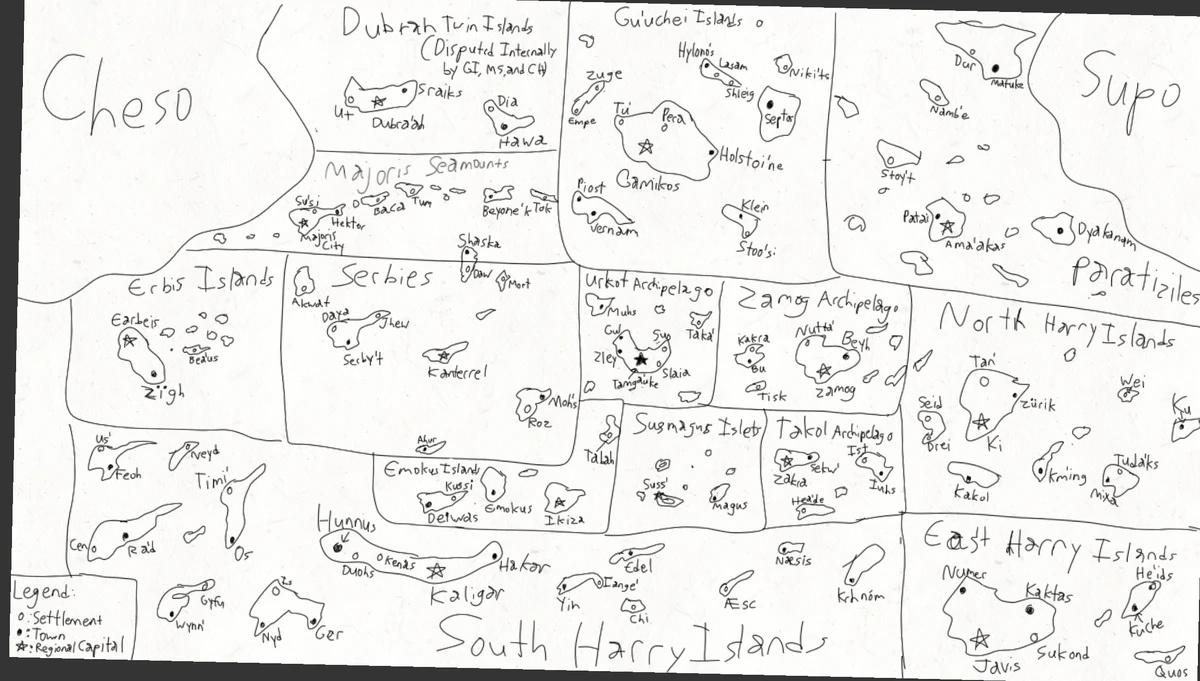 Cheso
Dubrah Twin Islands
(Disputed Internally
by GI, MS, and CH)
Sraiks
Ut
Dubra'ah
Dia
Hawa
Majoris Seamounts
Su'si
Hektor
Majoris
City
Baca
Tum
Beyone'k
Tok
Gu'uchei Islands
Zuge
Empe
Hylono's
Lasam
Shleig
Nikita
Septa
Tu'
Pera
Holstoi'ne
Gamikos
Piost
Vernam
Klein
Stoo'si
Supo
Dur
Matuke
Nambe
Stoy't
Patai
Ama'akas
Dyakanam
Paratiziles
Erbis Islands
Earbeis
Bea'us
Zïgh
Serbies
Shaska
Daw
Mort
Akwat
Daxa
Jhew
Serby't
Kanterrel
Moh's
Roz
Ahur
Urkot Archipelago
Muhs
Taka'
Gul
Suo
Zley
Slaia
Tamgauke
Talah
Zamog Archipelago
Kakra
Bu
Tisk
Nutta'
Beyh
Zamog
North Harry Islands
Tan'
Zürik
Ki
Wei
Ku
Seid
Drei
Kakol
Kming
Tuda'ks
Mixa
Us'
Feoh
Neyd
Timi'
Os
Cen
Rad
Emokus Island
Kussi
Detwas
Emokus
Ikiza
Susmagus Islets
Suss'
Magus
Takol Archipelago
Sekw'
Zakra
Ist
Iuhs
Hea'de
Hunnus
Duohs
Kenas
Hakar
Kaligar
Gyfu
Wynn'
Nyd
Ger
Edel
Yih
Iange'
Chi
Æsc
Næsis
Krhnóm
South Harry Islands
East Harry Islands
Numer
Kaktas
Javis
Sukond
He'ids
Kuche
Quos
Legend:
o: Settlement
•: Town
☆: Regional Capital